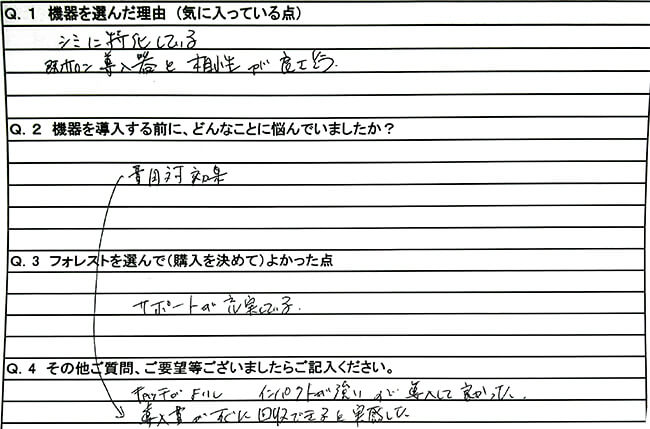 Q.1 機器を選んだ理由(気に入っている点)
シミに特化している
導入器と相性が良さそう.
Q.2 機器を導入する前に、どんなことに悩んでいましたか?
費用対効果
Q.3 フォレストを選んで(購入を決めて)よかった点
サポートが充実している.
Q.4 その他ご質問、ご要望等ございましたらご記入ください。
インパクトが強い 導入して良かった.
導入費がすぐに回収できると実感した